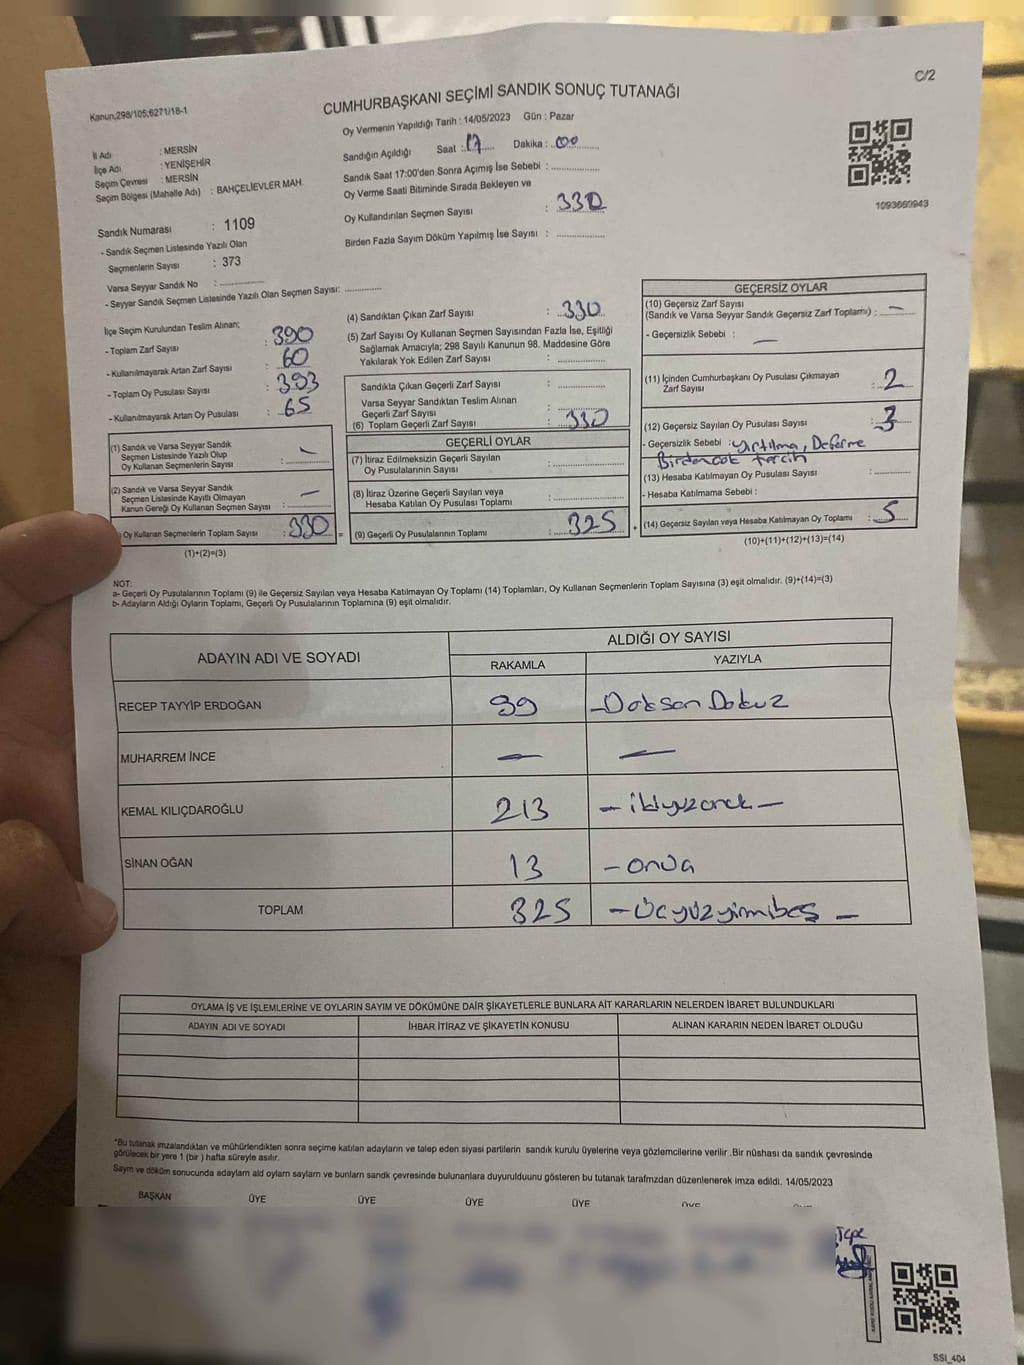 C/2
Kanun,298/105;6271/18-1
CUMHURBAŞKANI SEÇİMİ SANDIK SONUÇ TUTANAĞI
Oy Vermenin Yapıldığı Tarih : 14/05/2023 Gün : Pazar
İl Adı : MERSİN
İlçe Adı : YENİŞEHİR
Seçim Çevresi : MERSİN
Seçim Bölgesi (Mahalle Adı) : BAHÇELİEVLER MAH.
Sandığın Açıldığı Saat : 17 Dakika : 00
Sandık Saat 17:00'den Sonra Açımış İse Sebebi :
Oy Verme Saati Bitiminde Sırada Bekleyen ve
Oy Kullandırılan Seçmen Sayısı : 330
Birden Fazla Sayım Döküm Yapılmış İse Sayısı :
1093660943
Sandık Numarası : 1109
- Sandık Seçmen Listesinde Yazılı Olan
Seçmenlerin Sayısı : 373
Varsa Seyyar Sandık No :
- Seyyar Sandık Seçmen Listesinde Yazılı Olan Seçmen Sayısı:
İlçe Seçim Kurulundan Teslim Alınan;
- Toplam Zarf Sayısı : 390
- Kullanılmayarak Artan Zarf Sayısı : 60
- Toplam Oy Pusulası Sayısı : 393
- Kullanılmayarak Artan Oy Pusulası : 65
(1) Sandık ve Varsa Seyyar Sandık
Seçmen Listesinde Yazılı Olup
Oy Kullanan Seçmenlerin Sayısı : —
(2) Sandık ve Varsa Seyyar Sandık
Seçmen Listesinde Kayıtlı Olmayan
Kanun Gereği Oy Kullanan Seçmen Sayısı : —
Oy Kullanan Seçmenlerin Toplam Sayısı : 330 =
(1)+(2)=(3)
(4) Sandıktan Çıkan Zarf Sayısı : 330
(5) Zarf Sayısı Oy Kullanan Seçmen Sayısından Fazla İse, Eşitliği
Sağlamak Amacıyla; 298 Sayılı Kanunun 98. Maddesine Göre
Yakılarak Yok Edilen Zarf Sayısı :
Sandıkta Çıkan Geçerli Zarf Sayısı :
Varsa Seyyar Sandıktan Teslim Alınan
Geçerli Zarf Sayısı :
(6) Toplam Geçerli Zarf Sayısı : 330
GEÇERLİ OYLAR
(7) İtiraz Edilmeksizin Geçerli Sayılan
Oy Pusulalarının Sayısı :
(8) İtiraz Üzerine Geçerli Sayılan veya
Hesaba Katılan Oy Pusulası Toplamı :
(9) Geçerli Oy Pusulalarının Toplamı : 325 +
GEÇERSİZ OYLAR
(10) Geçersiz Zarf Sayısı
(Sandık ve Varsa Seyyar Sandık Geçersiz Zarf Toplamı) : —
- Geçersizlik Sebebi : —
(11) İçinden Cumhurbaşkanı Oy Pusulası Çıkmayan
Zarf Sayısı : 2
(12) Geçersiz Sayılan Oy Pusulası Sayısı : 3
- Geçersizlik Sebebi : yırtılma,
Birdençok tercih
(13) Hesaba Katılmayan Oy Pusulası Sayısı :
- Hesaba Katılmama Sebebi :
(14) Geçersiz Sayılan veya Hesaba Katılmayan Oy Toplamı : 5
(10)+(11)+(12)+(13)=(14)
NOT:
a- Geçerli Oy Pusulalarının Toplamı (9) ile Geçersiz Sayılan veya Hesaba Katılmayan Oy Toplamı (14) Toplamları, Oy Kullanan Seçmenlerin Toplam Sayısına (3) eşit olmalıdır. (9)+(14)=(3)
b- Adayların Aldığı Oyların Toplamı, Geçerli Oy Pusulalarının Toplamına (9) eşit olmalıdır.
ADAYIN ADI VE SOYADI
ALDIĞI OY SAYISI
RAKAMLA YAZIYLA
RECEP TAYYİP ERDOĞAN 99 -Doksan Dokuz
MUHARREM İNCE — —
KEMAL KILIÇDAROĞLU 213
SİNAN OĞAN 13 -onüç
TOPLAM 325 -Üçyüzyirmibeş -
OYLAMA İŞ VE İŞLEMLERİNE VE OYLARIN SAYIM VE DÖKÜMÜNE DAİR ŞİKAYETLERLE BUNLARA AİT KARARLARIN NELERDEN İBARET BULUNDUKLARI
ADAYIN ADI VE SOYADI İHBAR İTİRAZ VE ŞİKAYETİN KONUSU ALINAN KARARIN NEDEN İBARET OLDUĞU
*Bu tutanak imzalandıktan ve mühürlendikten sonra seçime katılan adayların ve talep eden siyasi partilerin sandık kurulu üyelerine veya gözlemcilerine verilir .Bir nüshası da sandık çevresinde
görülecek bir yere 1 (bir ) hafta süreyle asılır.
Sayım ve döküm sonucunda adayların ald oyların sayların ve bunların sandk çevresinde bulunanlara duyurulduunu gösteren bu tutanak tarafmzdan düzenlenerek imza edildi. 14/05/2023
BAŞKAN ÜYE ÜYE ÜYE ÜYE
SSI_404